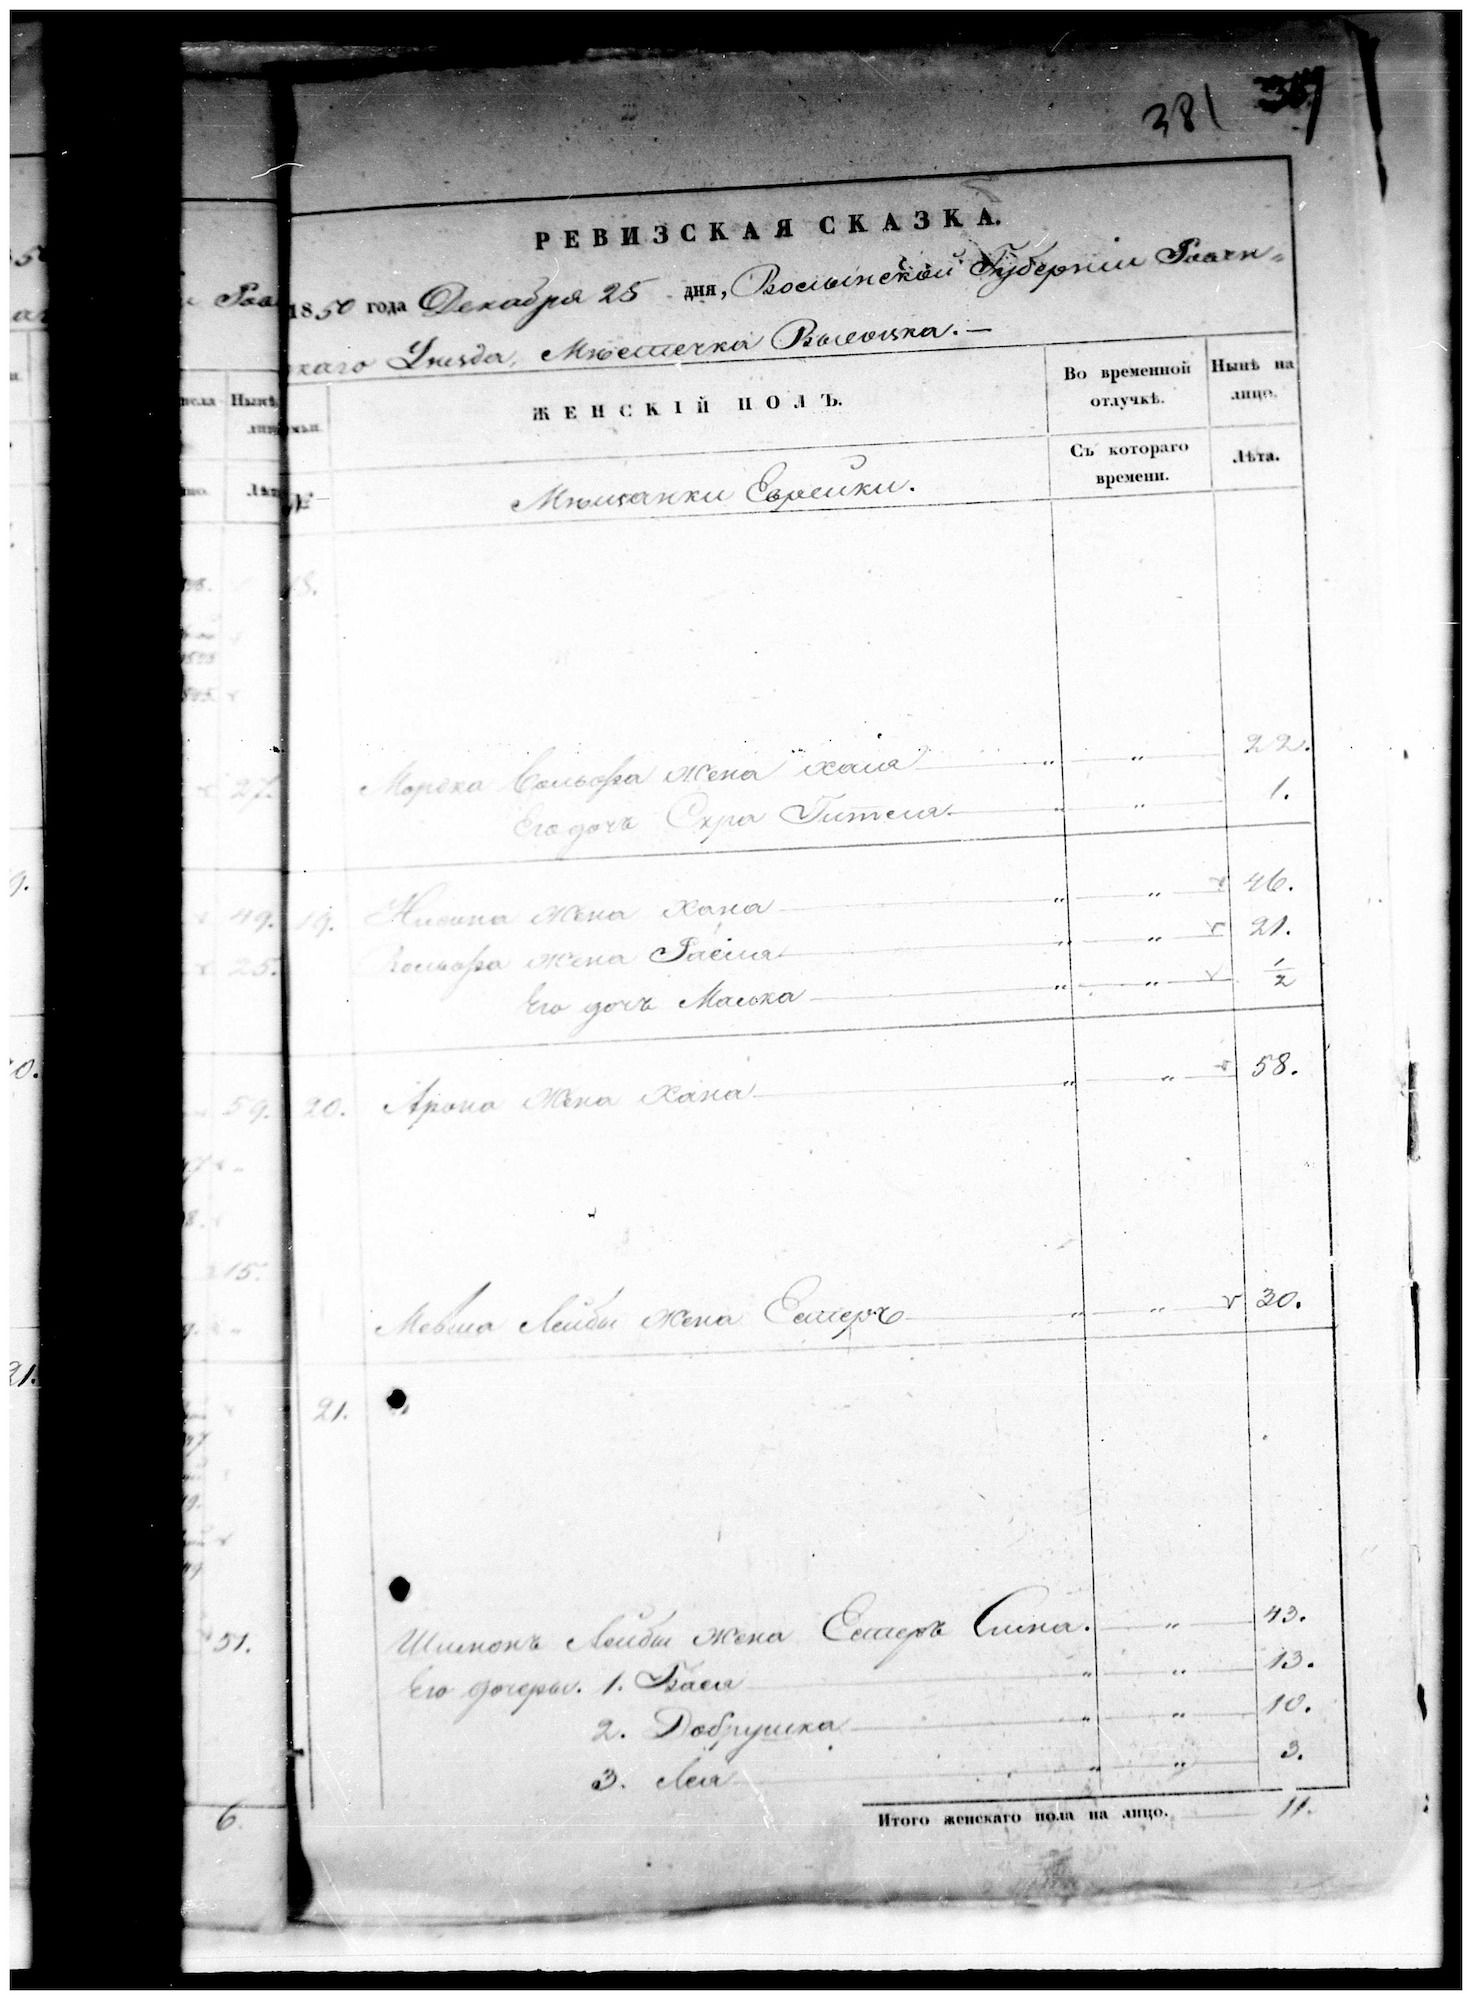 381 317
РЕВИЗСКАЯ СКАЗКА.
1850 года Декабря 25 дня, Волынской Губерніи Ровен-
скаго Уѣзда, Мѣстечка Высоцка. —
ЖЕНСКІЙ ПОЛЪ.
Во временной отлучкѣ.
Нынѣ на лицо.
Съ котораго времени.
Лѣта.
Мѣщанки Еврейки.
18.
Мордка Вольфа жена Хаія " " 22.
Его дочь Сура Гителя " " 1.
19. Нисона жена Хана " " 46.
Вольфа жена " " 21.
Его дочь Маська " " 1/2
20. Арона жена Хана " " 58.
Лейбы жена Естеръ " " 30.
21. "
Шимонъ Лейбы жена Естеръ " 43.
Его дочери. 1. Бася " " 13.
2. Добрушка " " 10.
3. Лея " " 3.
Итого женскаго пола на лицо. 11.
27.
49.
25.
59.
15.
51.
6.